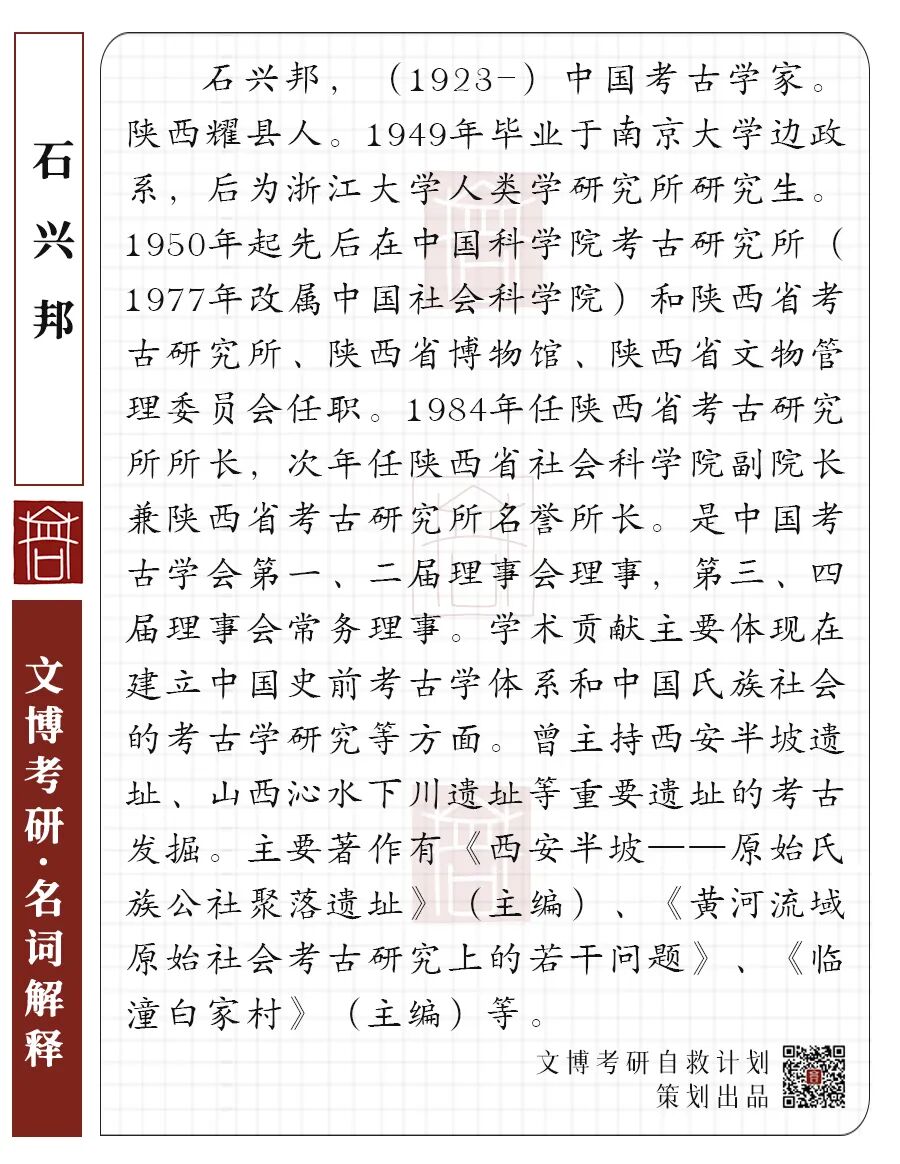 石兴邦
文博考研·名词解释
石兴邦，（1923-）中国考古学家。
陕西耀县人。1949年毕业于南京大学边政
系，后为浙江大学人类学研究所研究生。
1950年起先后在中国科学院考古研究所（
1977年改属中国社会科学院）和陕西省考
古研究所、陕西省博物馆、陕西省文物管
理委员会任职。1984年任陕西省考古研究
所所长，次年任陕西省社会科学院副院长
兼陕西省考古研究所名誉所长。是中国考
古学会第一、二届理事会理事，第三、四
届理事会常务理事。学术贡献主要体现在
建立中国史前考古学体系和中国氏族社会
的考古学研究等方面。曾主持西安半坡遗
址、山西沁水下川遗址等重要遗址的考古
发掘。主要著作有《西安半坡——原始氏
族公社聚落遗址》（主编）、《黄河流域
原始社会考古研究上的若干问题》、《临
潼白家村》（主编）等。
文博考研自救计划
策划出品